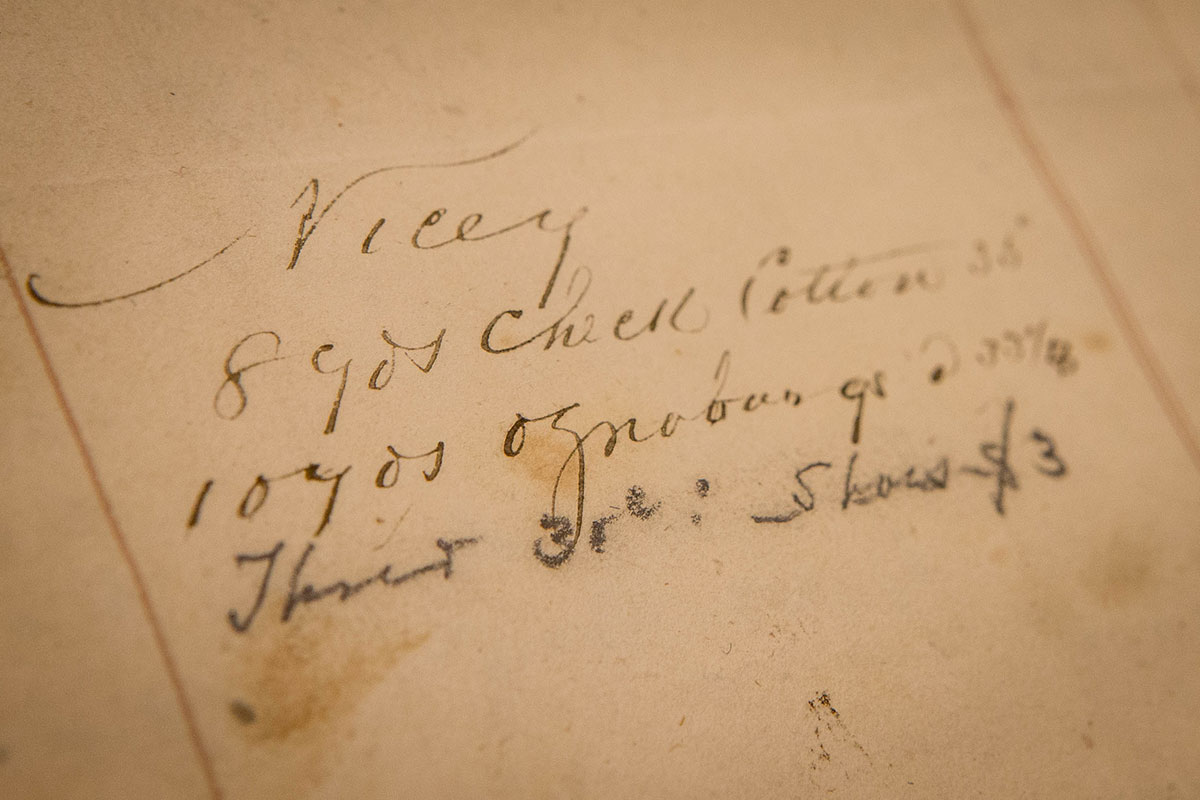 Vicey
8 yds Check Cotton 35
10 yds oznobungs
Thred 35c: Shoes - $3